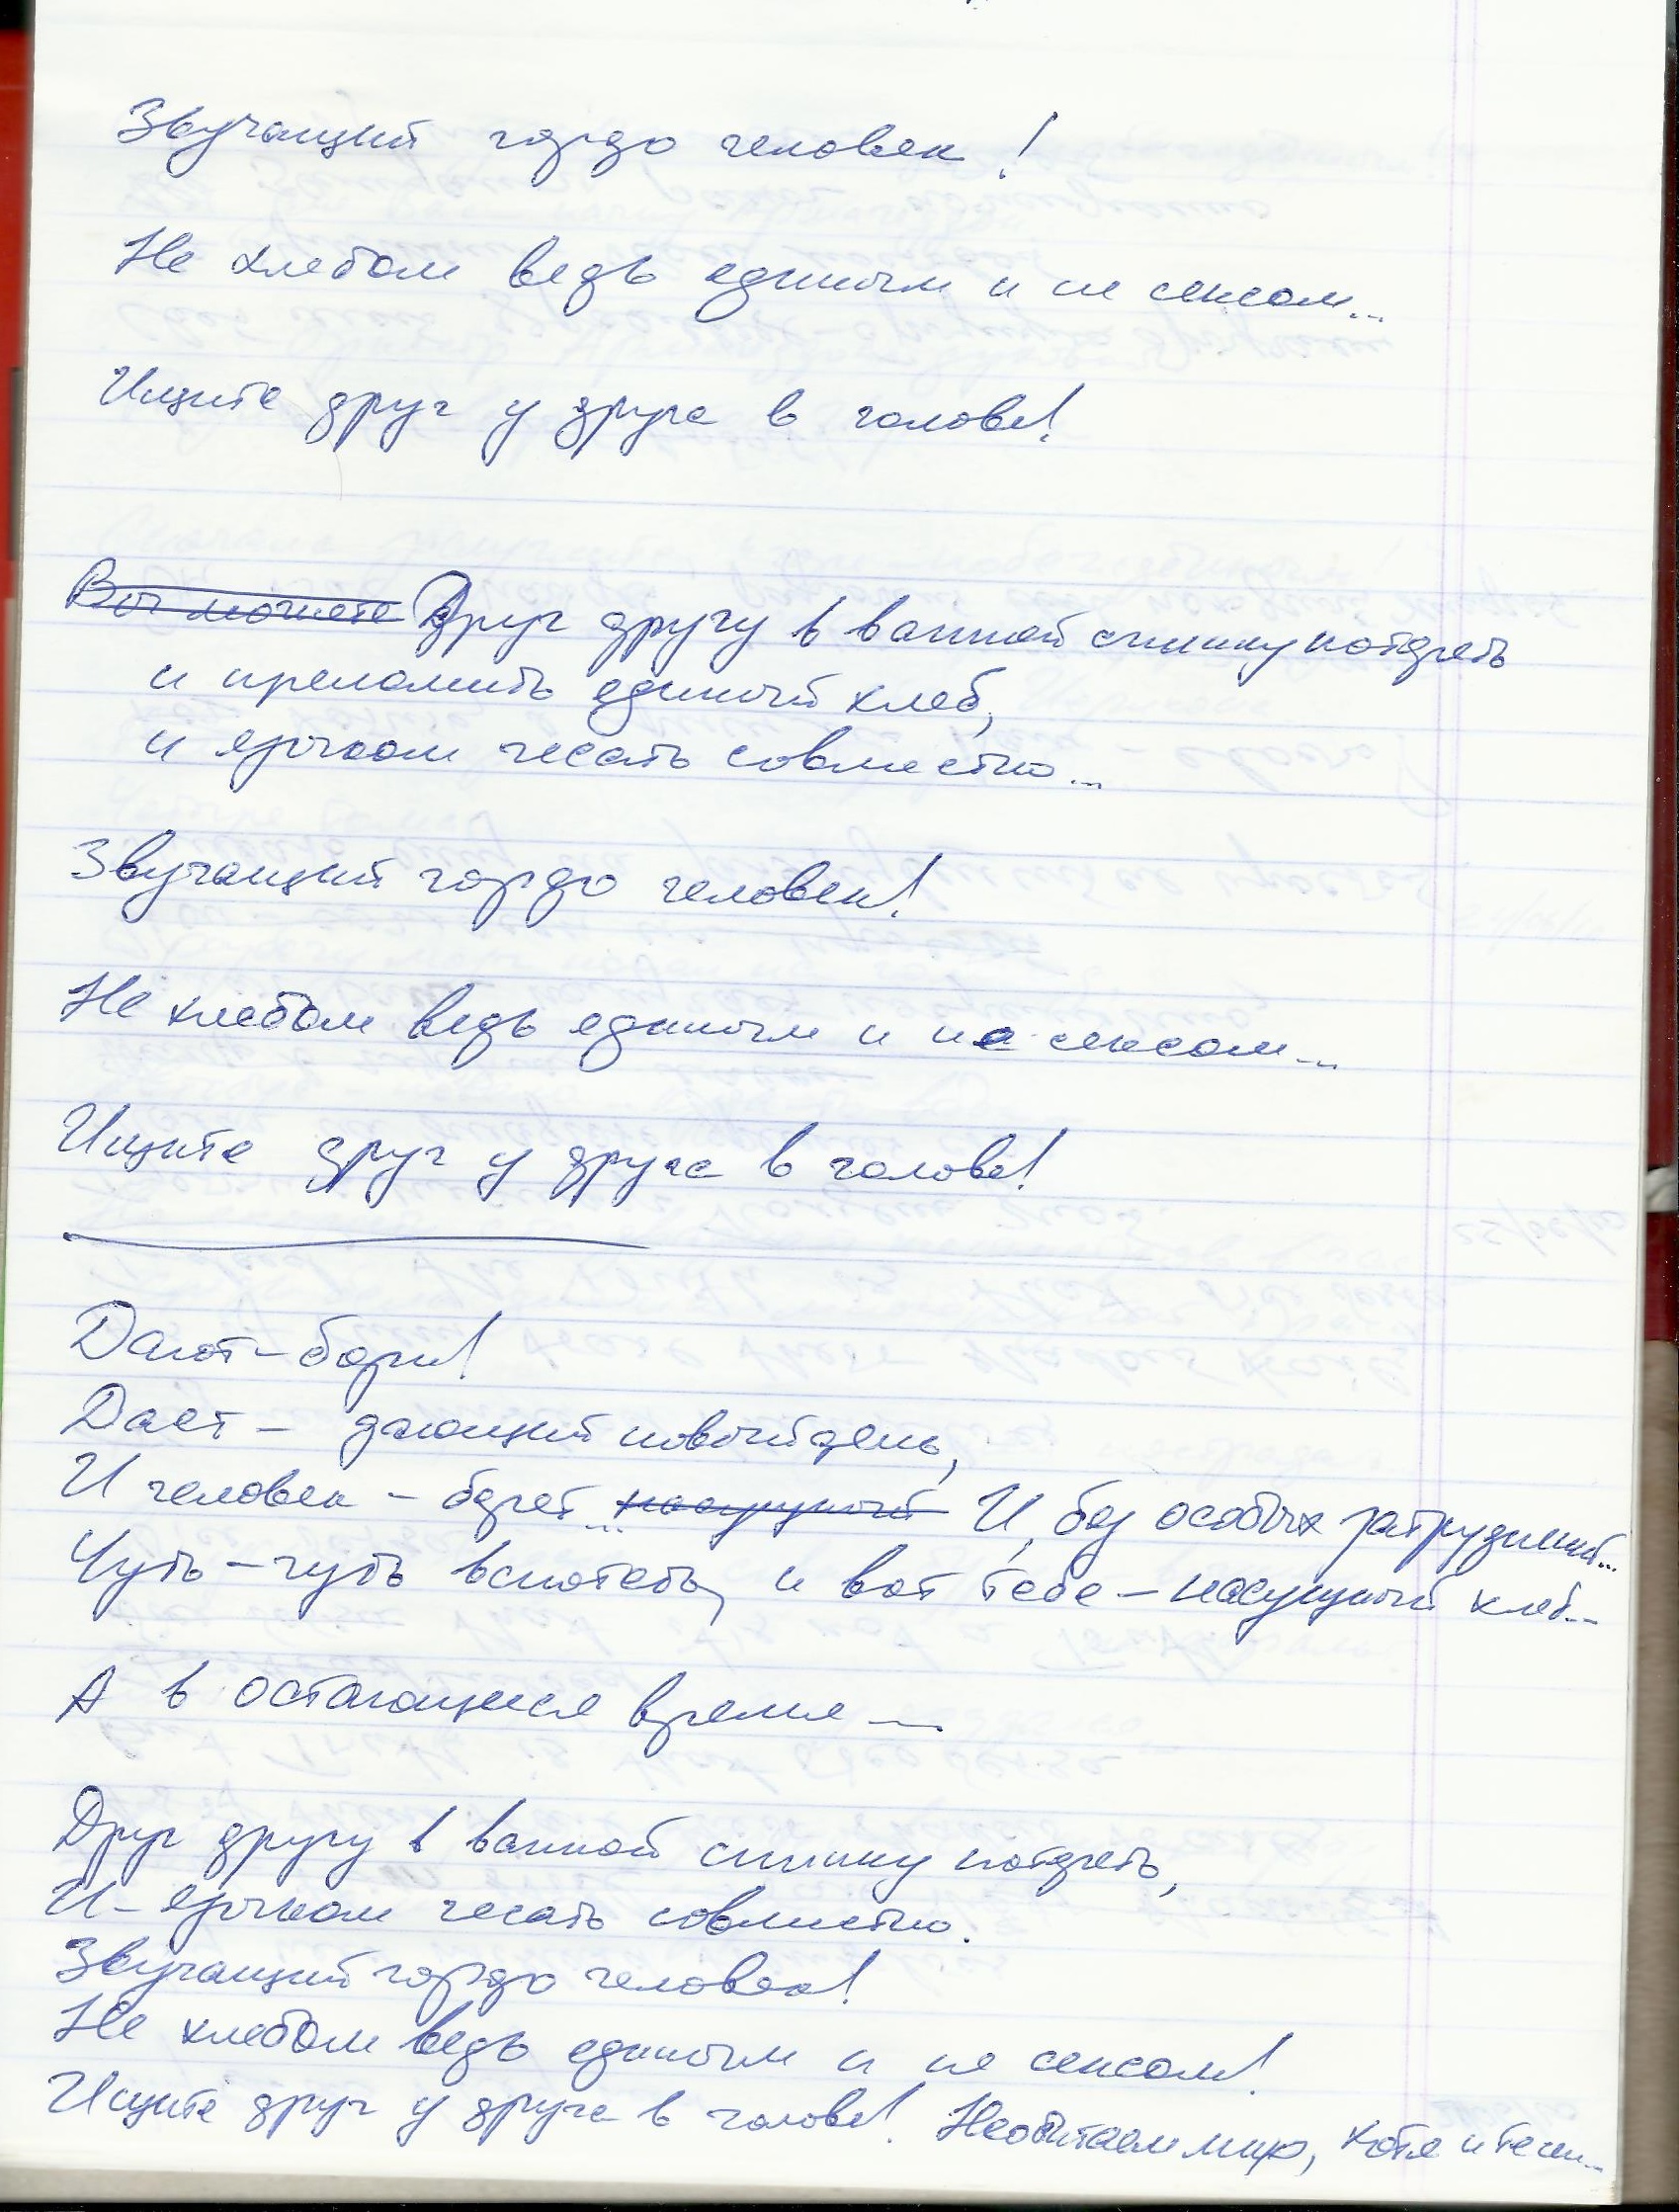 Звучащий гордо человек!
Не хлебом ведь единым и не сексом...
Ищите друг у друга в голове!
Вы можете Друг другу в ванной спинку потереть
и преломить единый хлеб,
и язычком чесать совместно...
Звучащий гордо человек!
Не хлебом ведь единым и не сексом...
Ищите друг у друга в голове!
Дают – бери!
Дает – дающий новый день,
И человек – берет... насущный И, без особых затруднений...
Чуть-чуть вспотеть, и вот тебе – насущный хлеб...
А в остающееся время...
Друг другу в ванной спинку потереть,
И – язычком чесать совместно.
Звучащий гордо человек!
Не хлебом ведь единым и не сексом!
Ищите друг у друга в голове! Необитаем мир, хотя и тесен...